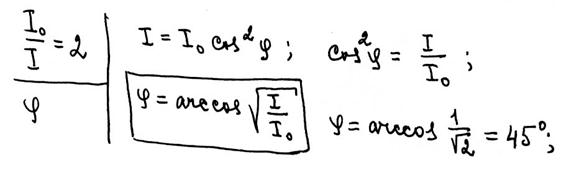 I₀/I = 2
φ
I = I₀ cos²φ; cos²φ = I/I₀;
φ = arccos √(I/I₀) φ = arccos 1/√2 = 45°;